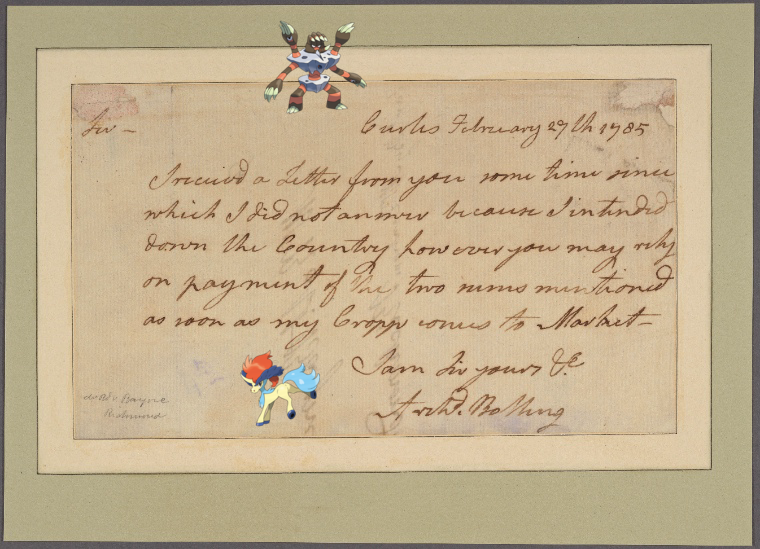 Sir —
Curls February 27th 1785
I receivd a Letter from you some time since
which I did not answer because I intended
down the Country however you may rely
on payment of the two sums mentioned
as soon as my Cropp comes to Market —
I am Sir yours &c
Archd. Bolling
Richmond